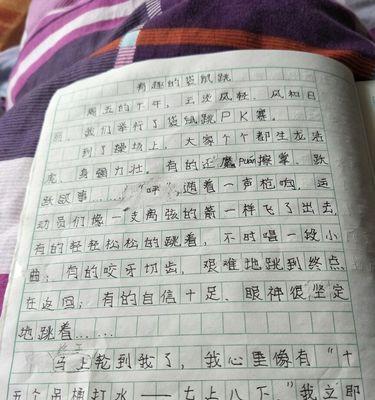 有趣的袋鼠跳
周五的下午，云淡风轻，风和日
丽，我们举行了袋鼠跳PK赛。
到了操场上，大家个个都生龙活
虎、身强力壮。有的还魔puán擦掌、跃
跃欲事……“呼”，随着一声枪响，运
动员们像一支离弦的箭一样飞了出去，
有的轻轻松松的跳着，不时唱一段小
曲；有的咬牙切齿，艰难地跳到终点
在返回；有的自信十足、眼神很坚定
地跳着……
马上轮到我了，我心里像有“十
五个吊桶打水——七上八下。”我立即